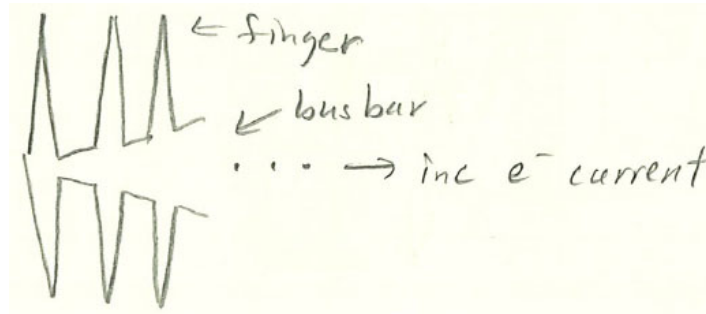 ← finger
↙ bus bar
. . . → inc e⁻ current